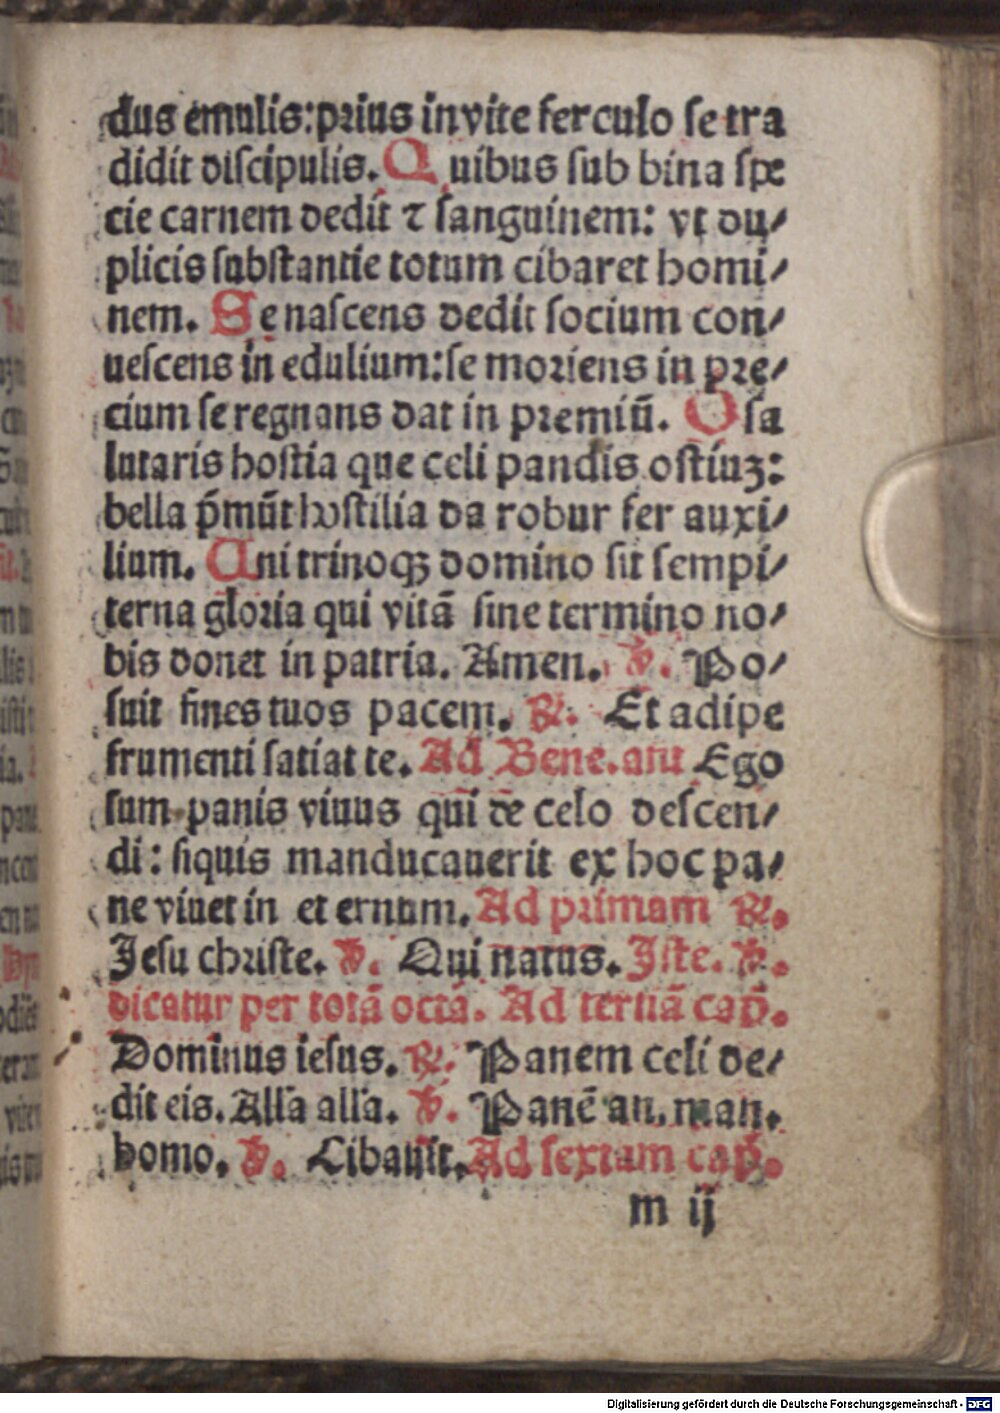 dus emulis: prius in vite ferculo se tra
didit discipulis. Quibus sub bina spe
cie carnem dedit ⁊ sanguinem: vt du⸗
plicis substantie totum cibaret homi⸗
nem. Se nascens dedit socium con⸗
uescens in edulium: se moriens in pre⸗
cium se regnans dat in premiū. O sa
lutaris hostia que celi pandis ostiuꝫ:
bella p̄mūt hostilia da robur fer auxi⸗
lium. Uni trinoqꝫ domino sit sempi⸗
terna gloria qui vitā sine termino no⸗
bis donet in patria. Amen. ℣. Po⸗
suit fines tuos pacem. ℟. Et adipe
frumenti satiat te. Ad Bene. añ Ego
sum panis viuus qui de celo descen⸗
di: siquis manducauerit ex hoc pa⸗
ne viuet in et ernum. Ad primam ℟.
Jesu christe. ℣. Qui natus. Iste. ℣.
dicatur per totā octā. Ad tertiā cap̄.
Dominus iesus. ℟. Panem celi de⸗
dit eis. Alľa alľa. ℣. Panē an. man.
homo. ℣. Cibauit. Ad sextam cap̄.
m ij
Digitalisierung gefördert durch die Deutsche Forschungsgemeinschaft - DFG